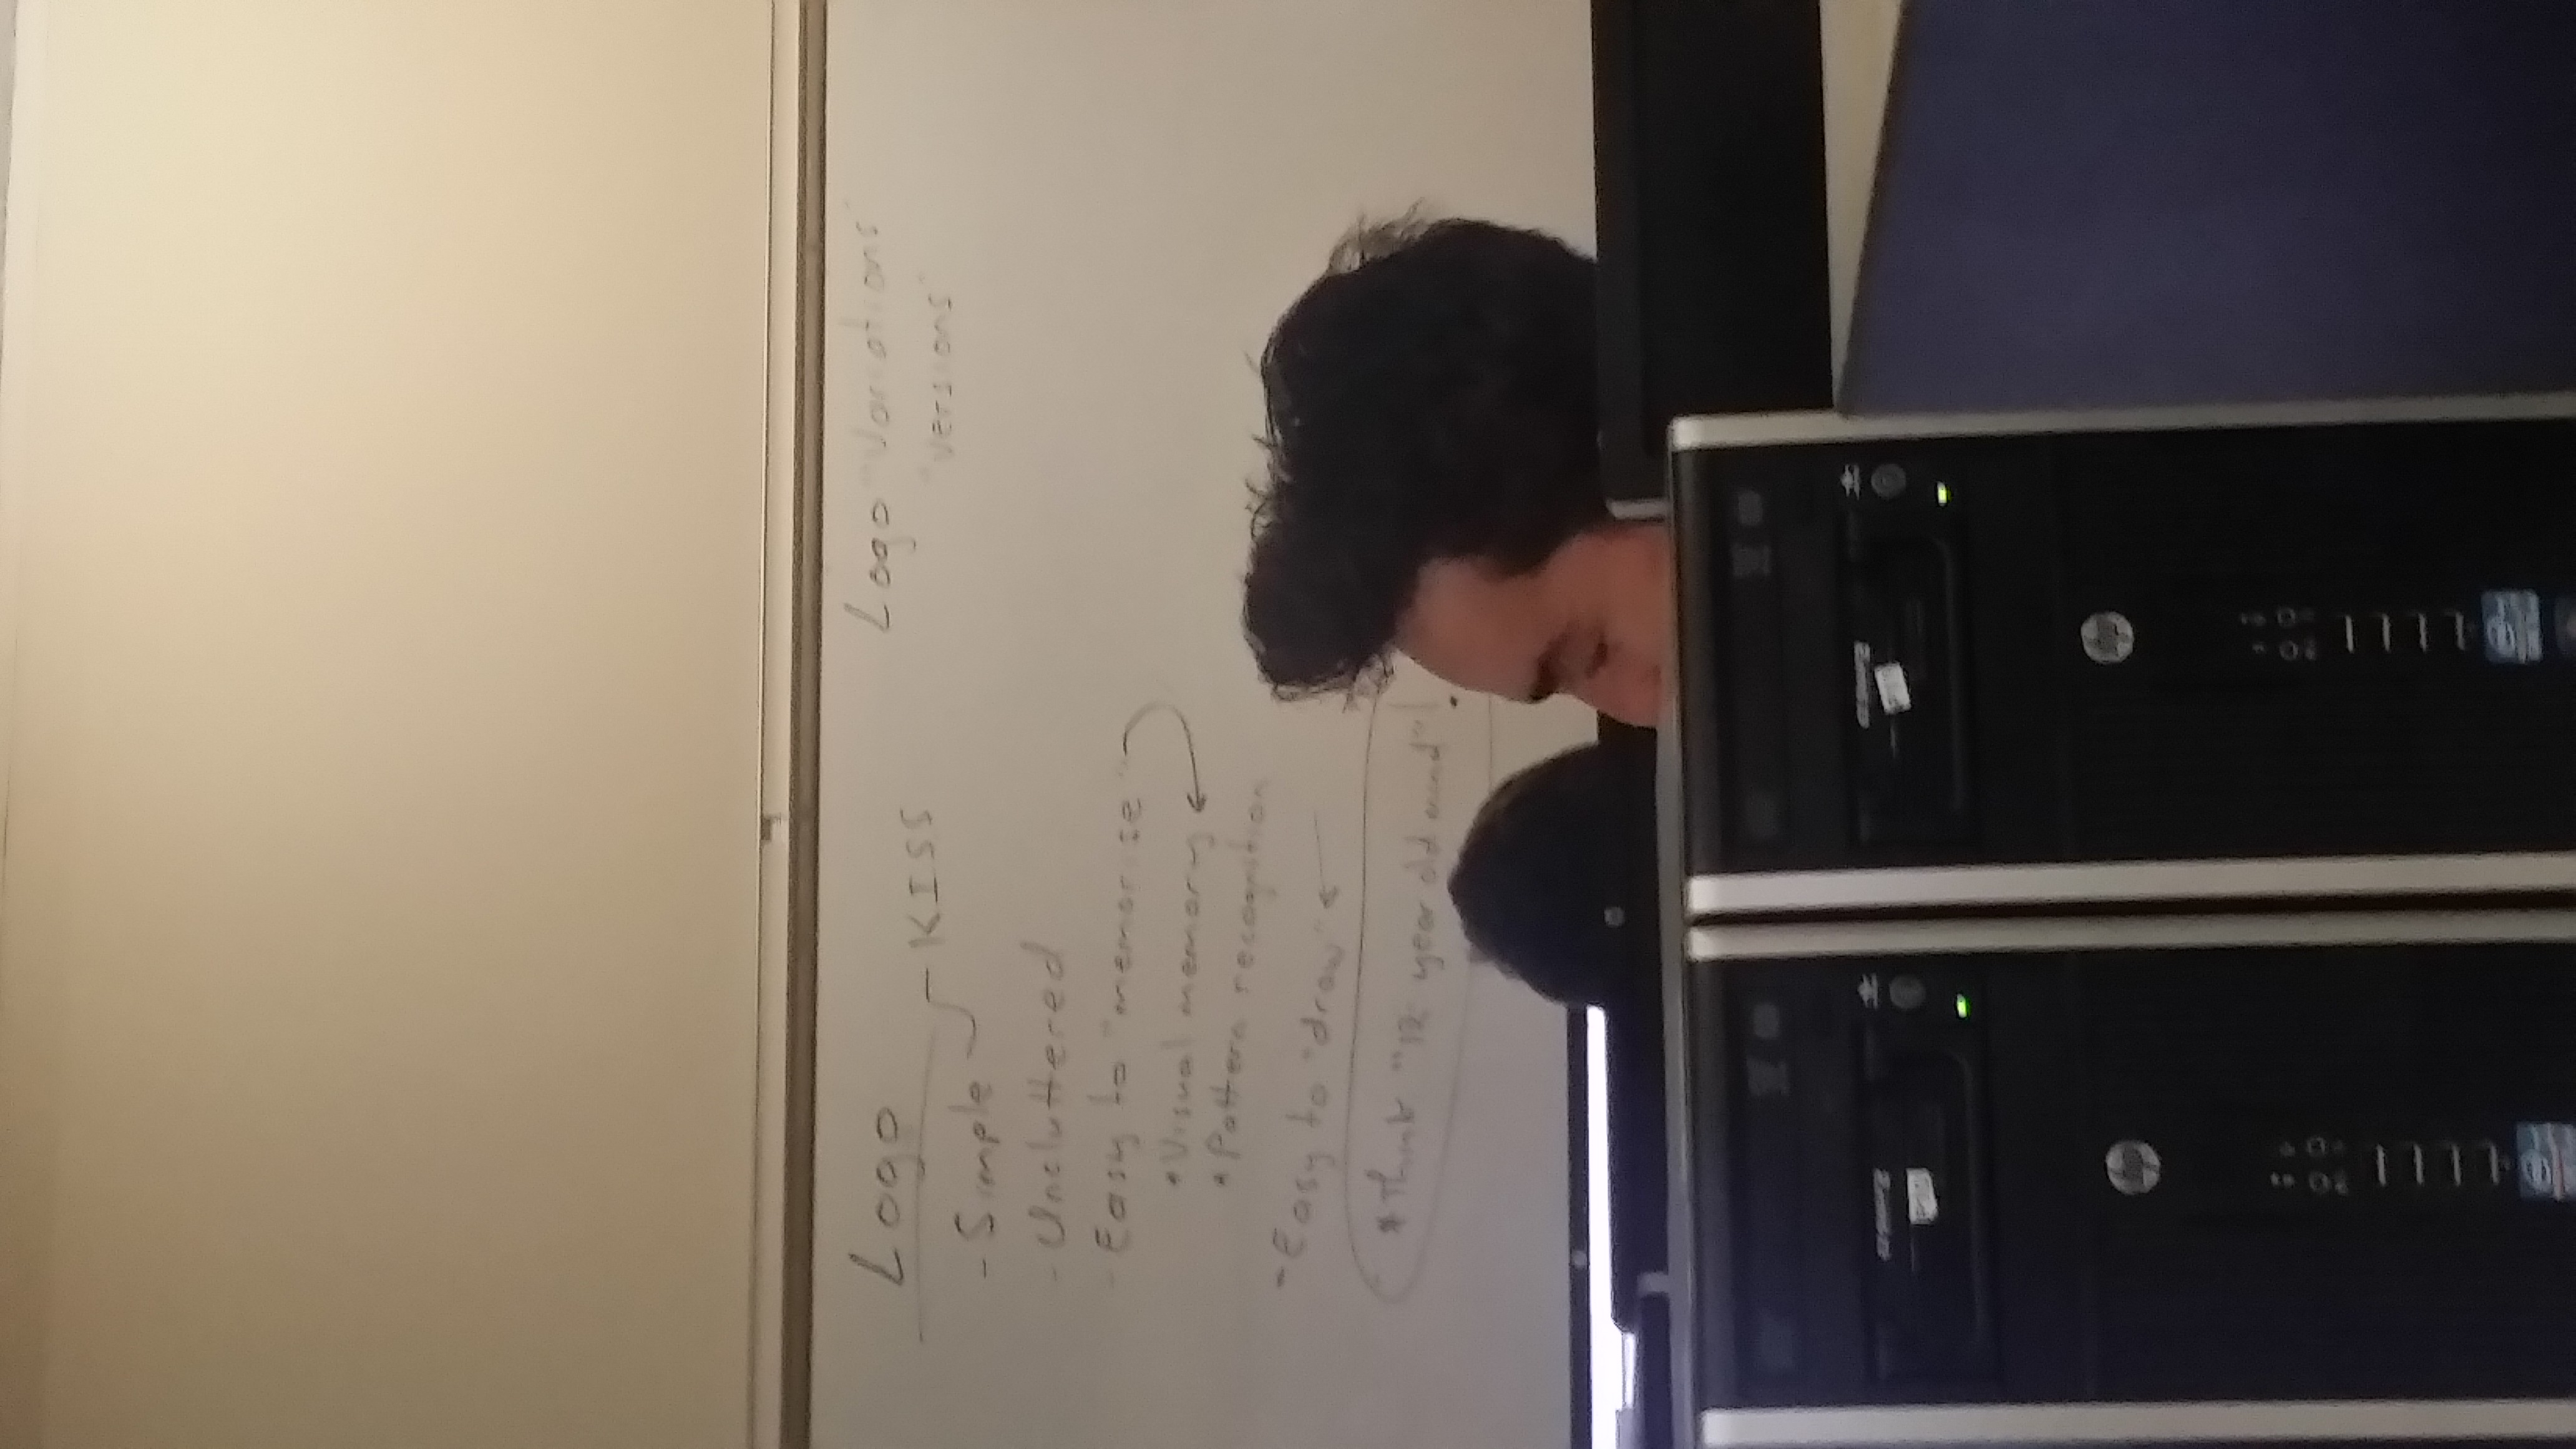 Logo
- Simple - KISS
- Uncluttered
- Easy to "memorise"
* Visual memory
* Pattern recognition
- Easy to "draw"
* Think "12 year old mind"!
Logo "Variations"
"versions"
hp
hp